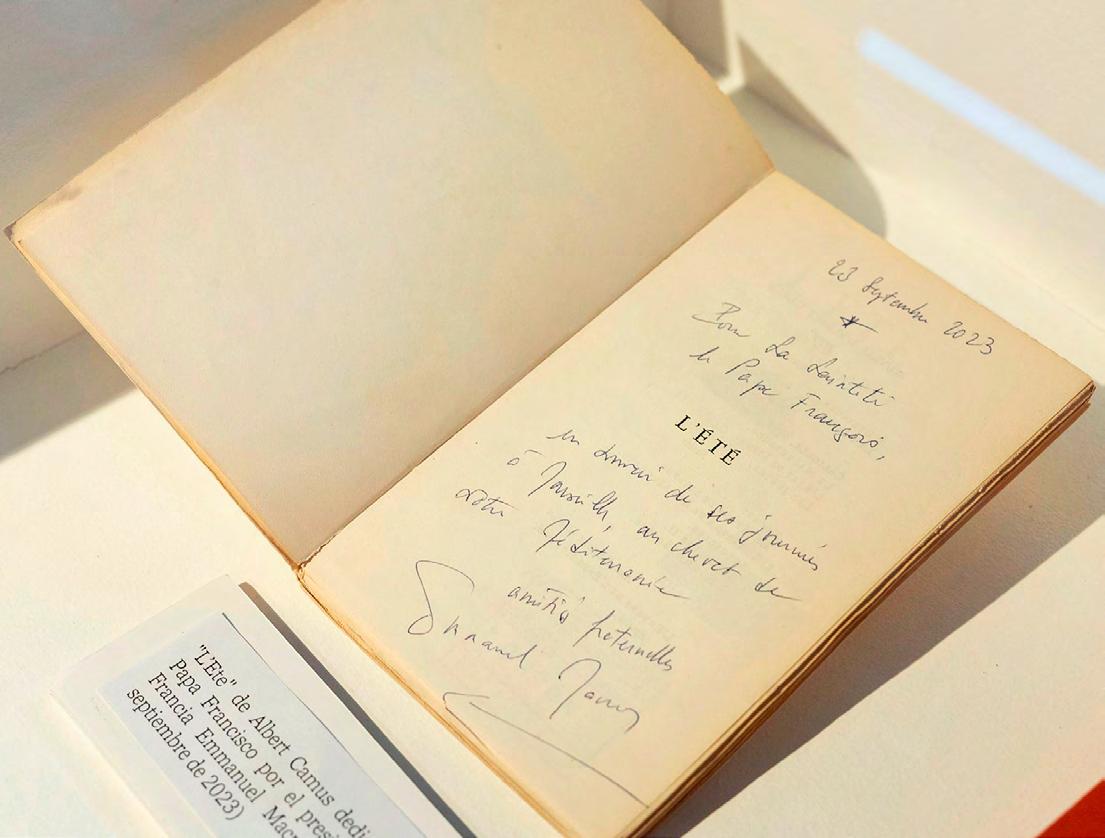 23 Septembre 2023
Pour Sa Sainteté
le Pape François,
L'ÉTÉ
en souvenir de ses journées
à Marseille, au chevet de
notre Méditerranée
amitiés fraternelles
Emmanuel Macron
"L'Ete" de Albert Camus dedi
Papa Francisco por el presi
Francia Emmanuel Macr
septiembre de 2023)